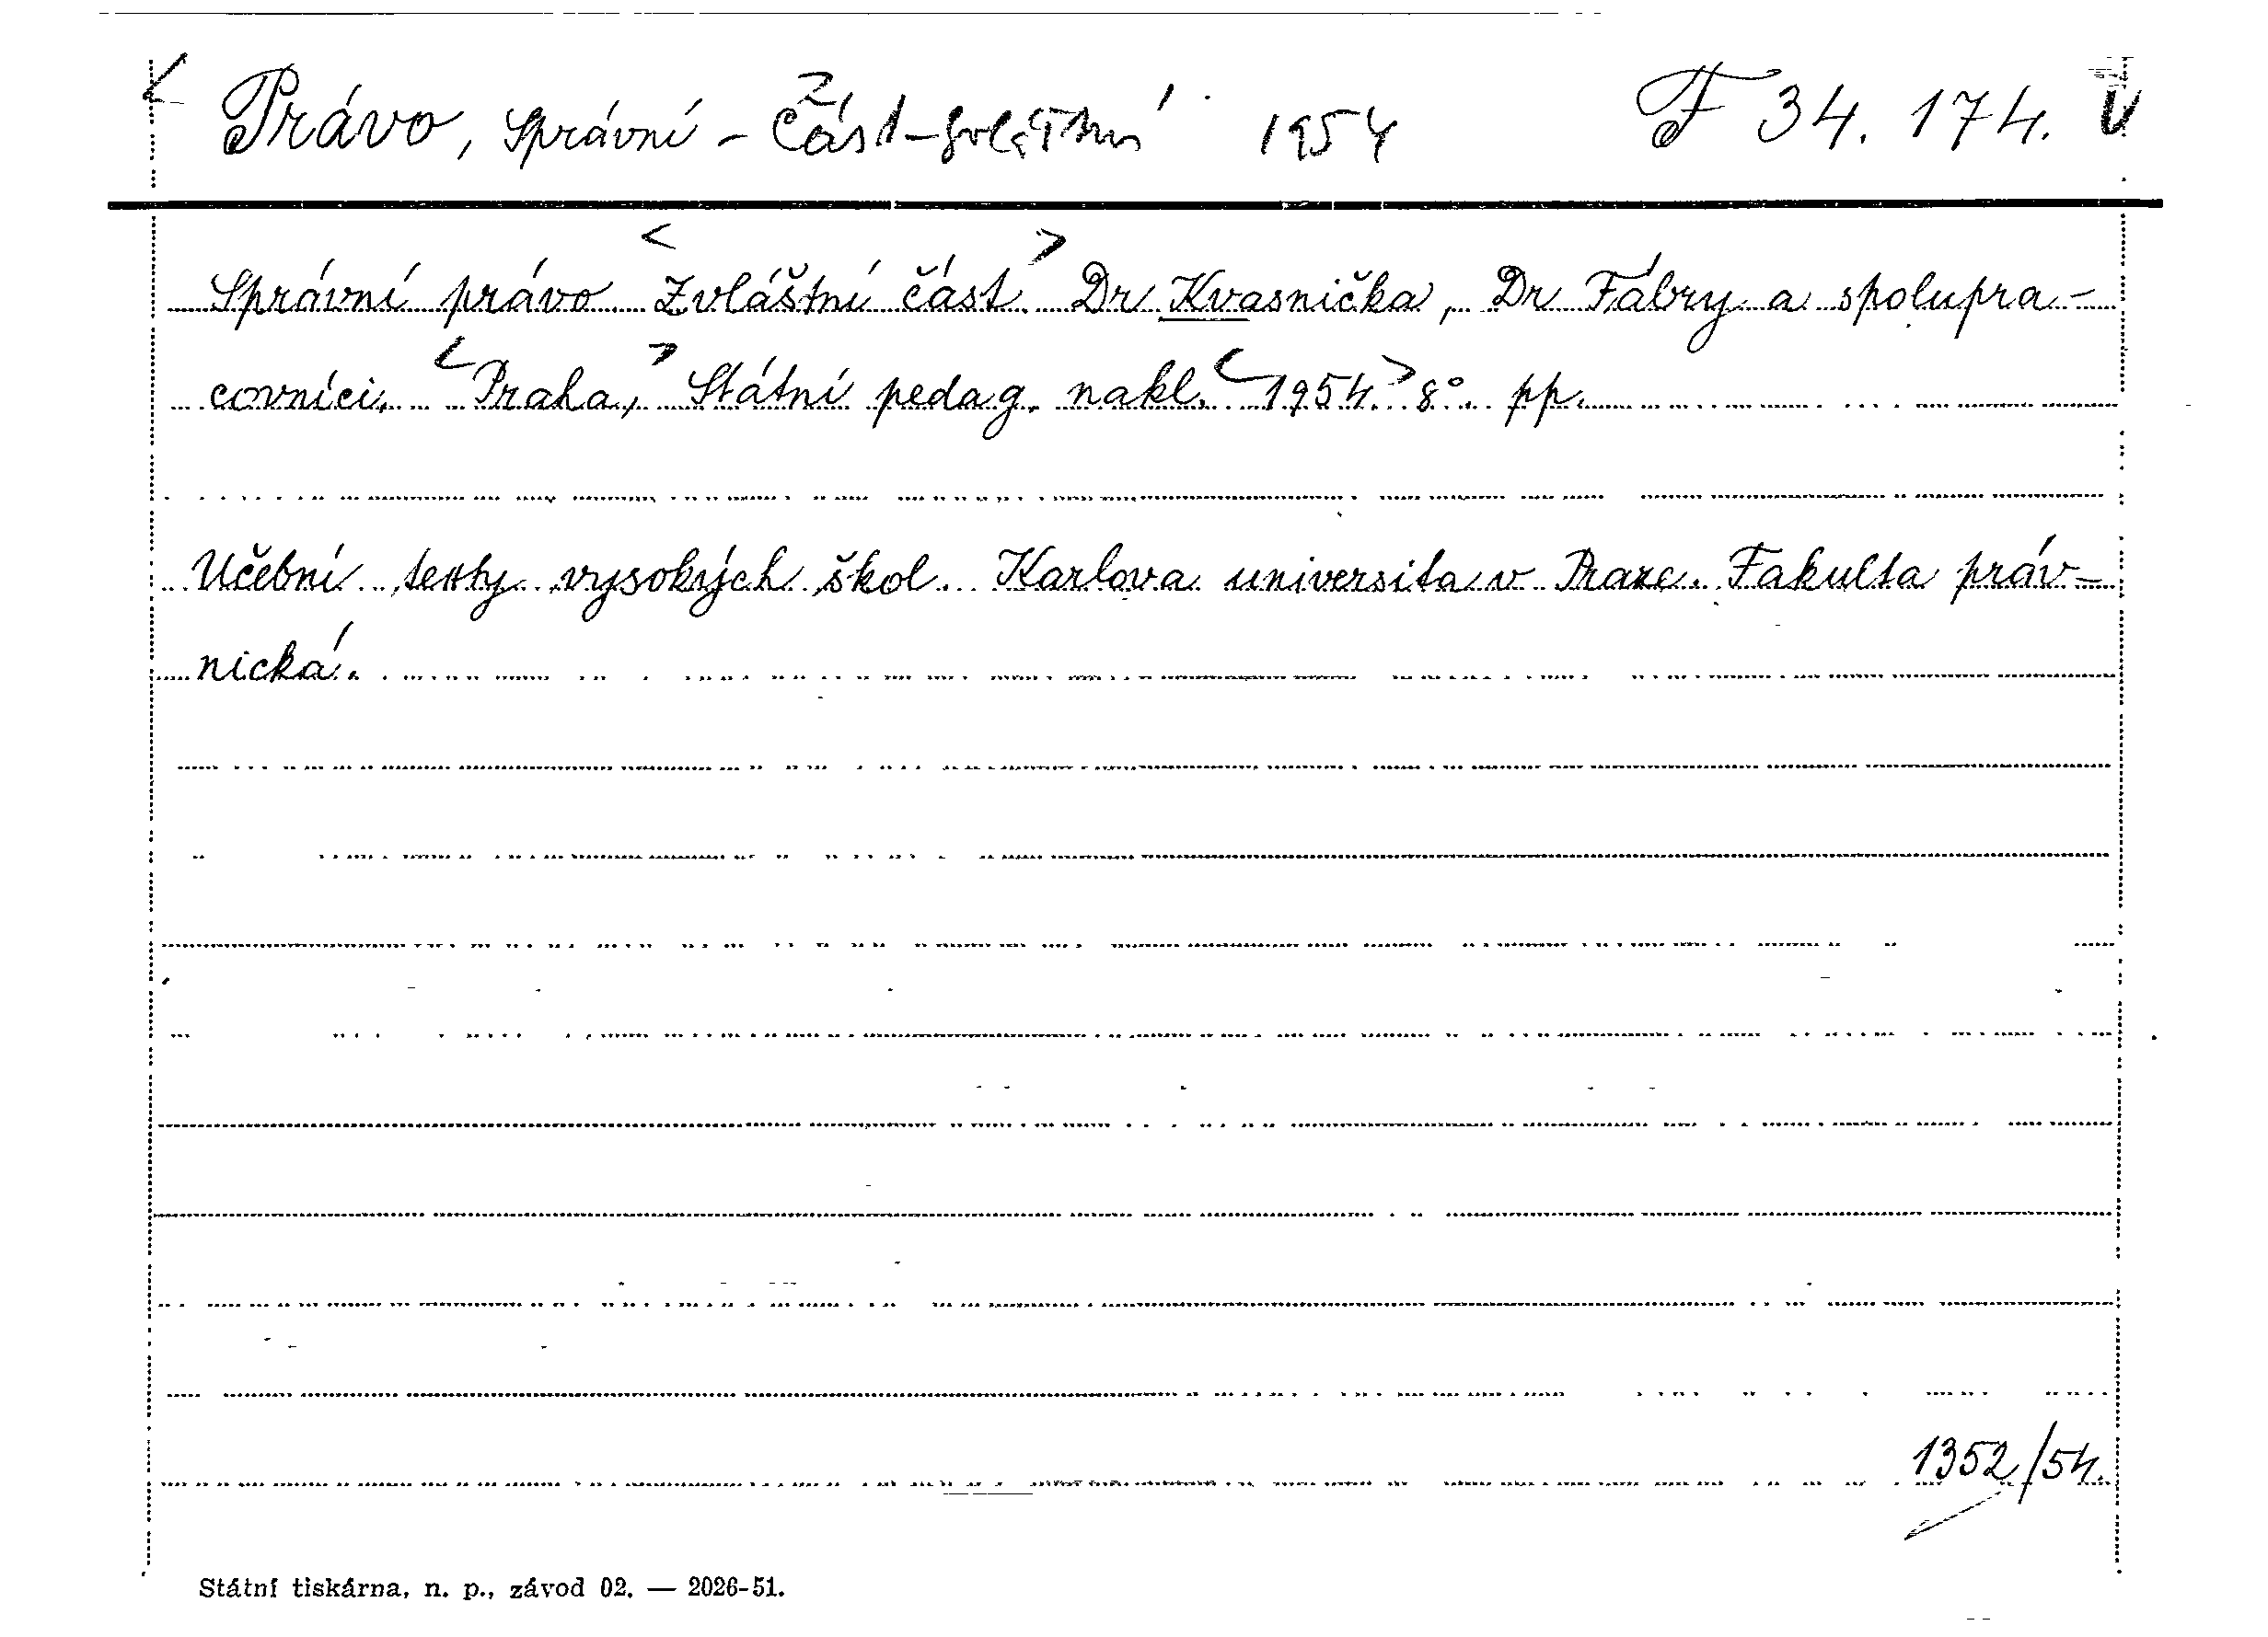 Právo, správní - část zvláštní 1954 F 34.174.
Správní právo. <Zvláštní část.> Dr Kvasnička, Dr Fábry a spolupra-
covníci. <Praha,> Státní pedag. nakl. <1954.> 8°. pp.
Učební texty vysokých škol. Karlova universita v Praze. Fakulta práv-
nická.
1352/54.
Státní tiskárna, n. p., závod 02. — 2026-51.